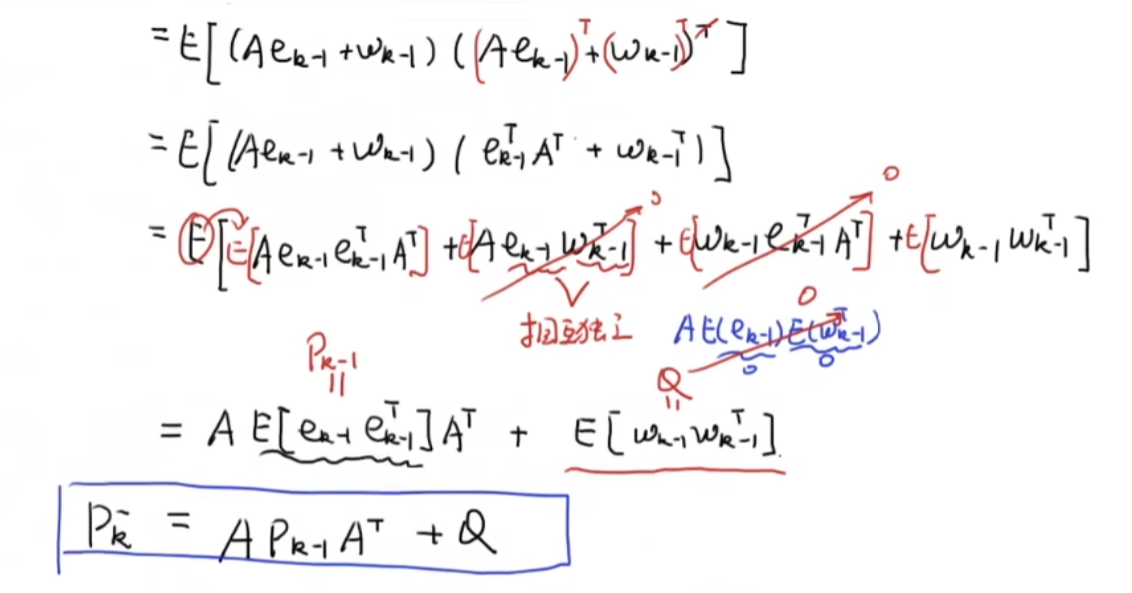 = E[(Ae_{k-1}+w_{k-1})((Ae_{k-1})^T+(w_{k-1})^T)]
= E[(Ae_{k-1}+w_{k-1})(e_{k-1}^T A^T + w_{k-1}^T)]
= E[E[Ae_{k-1}e_{k-1}^T A^T] + E[Ae_{k-1}w_{k-1}^T] + E[w_{k-1}e_{k-1}^T A^T] + E[w_{k-1}w_{k-1}^T]
0 0
相互独立 A E(e_{k-1})E(w_{k-1}^T) 0
0 0
P_{k-1} Q
|| ||
= A E[e_{k-1}e_{k-1}^T]A^T + E[w_{k-1}w_{k-1}^T].
P_k^- = A P_{k-1} A^T + Q